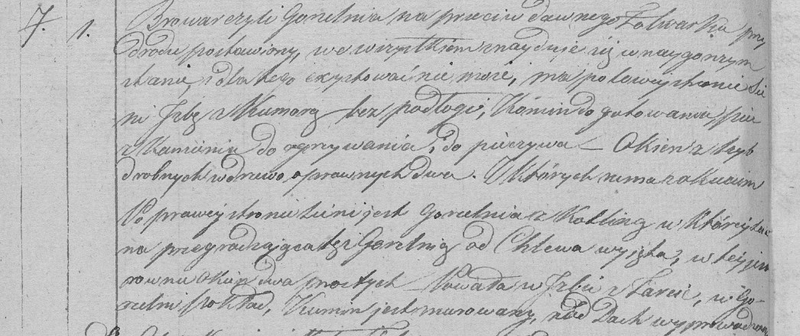 7. 1. Browar czyli Gorzelnia na przeciw dawnego Folwarku przy
drodze postawiony, we wszystkiem znayduje się w naygorszym
stanie, i dla tego exystować nie może, ma po lewey stronie Sie
ni Izbę z Kumorą bez podłogi, Komin do gotowania, piec
z Kamienia do ogrzywania, i do pieczywa — Okien z szyb
drobnych w drewo oprawnych dwa. Z których nima okucim
Po prawey stronie Sieni jest Gorzelnia z Kotliną w którey
na przegradzająca tę Gorzelnię od Chlewa wyszła, w tey
rowno okien dwa prostych — Powała w Izbie z Tarcic, w Go-
rzelni pokład, Kumin jest murowany, nad Dach wyprowadzony